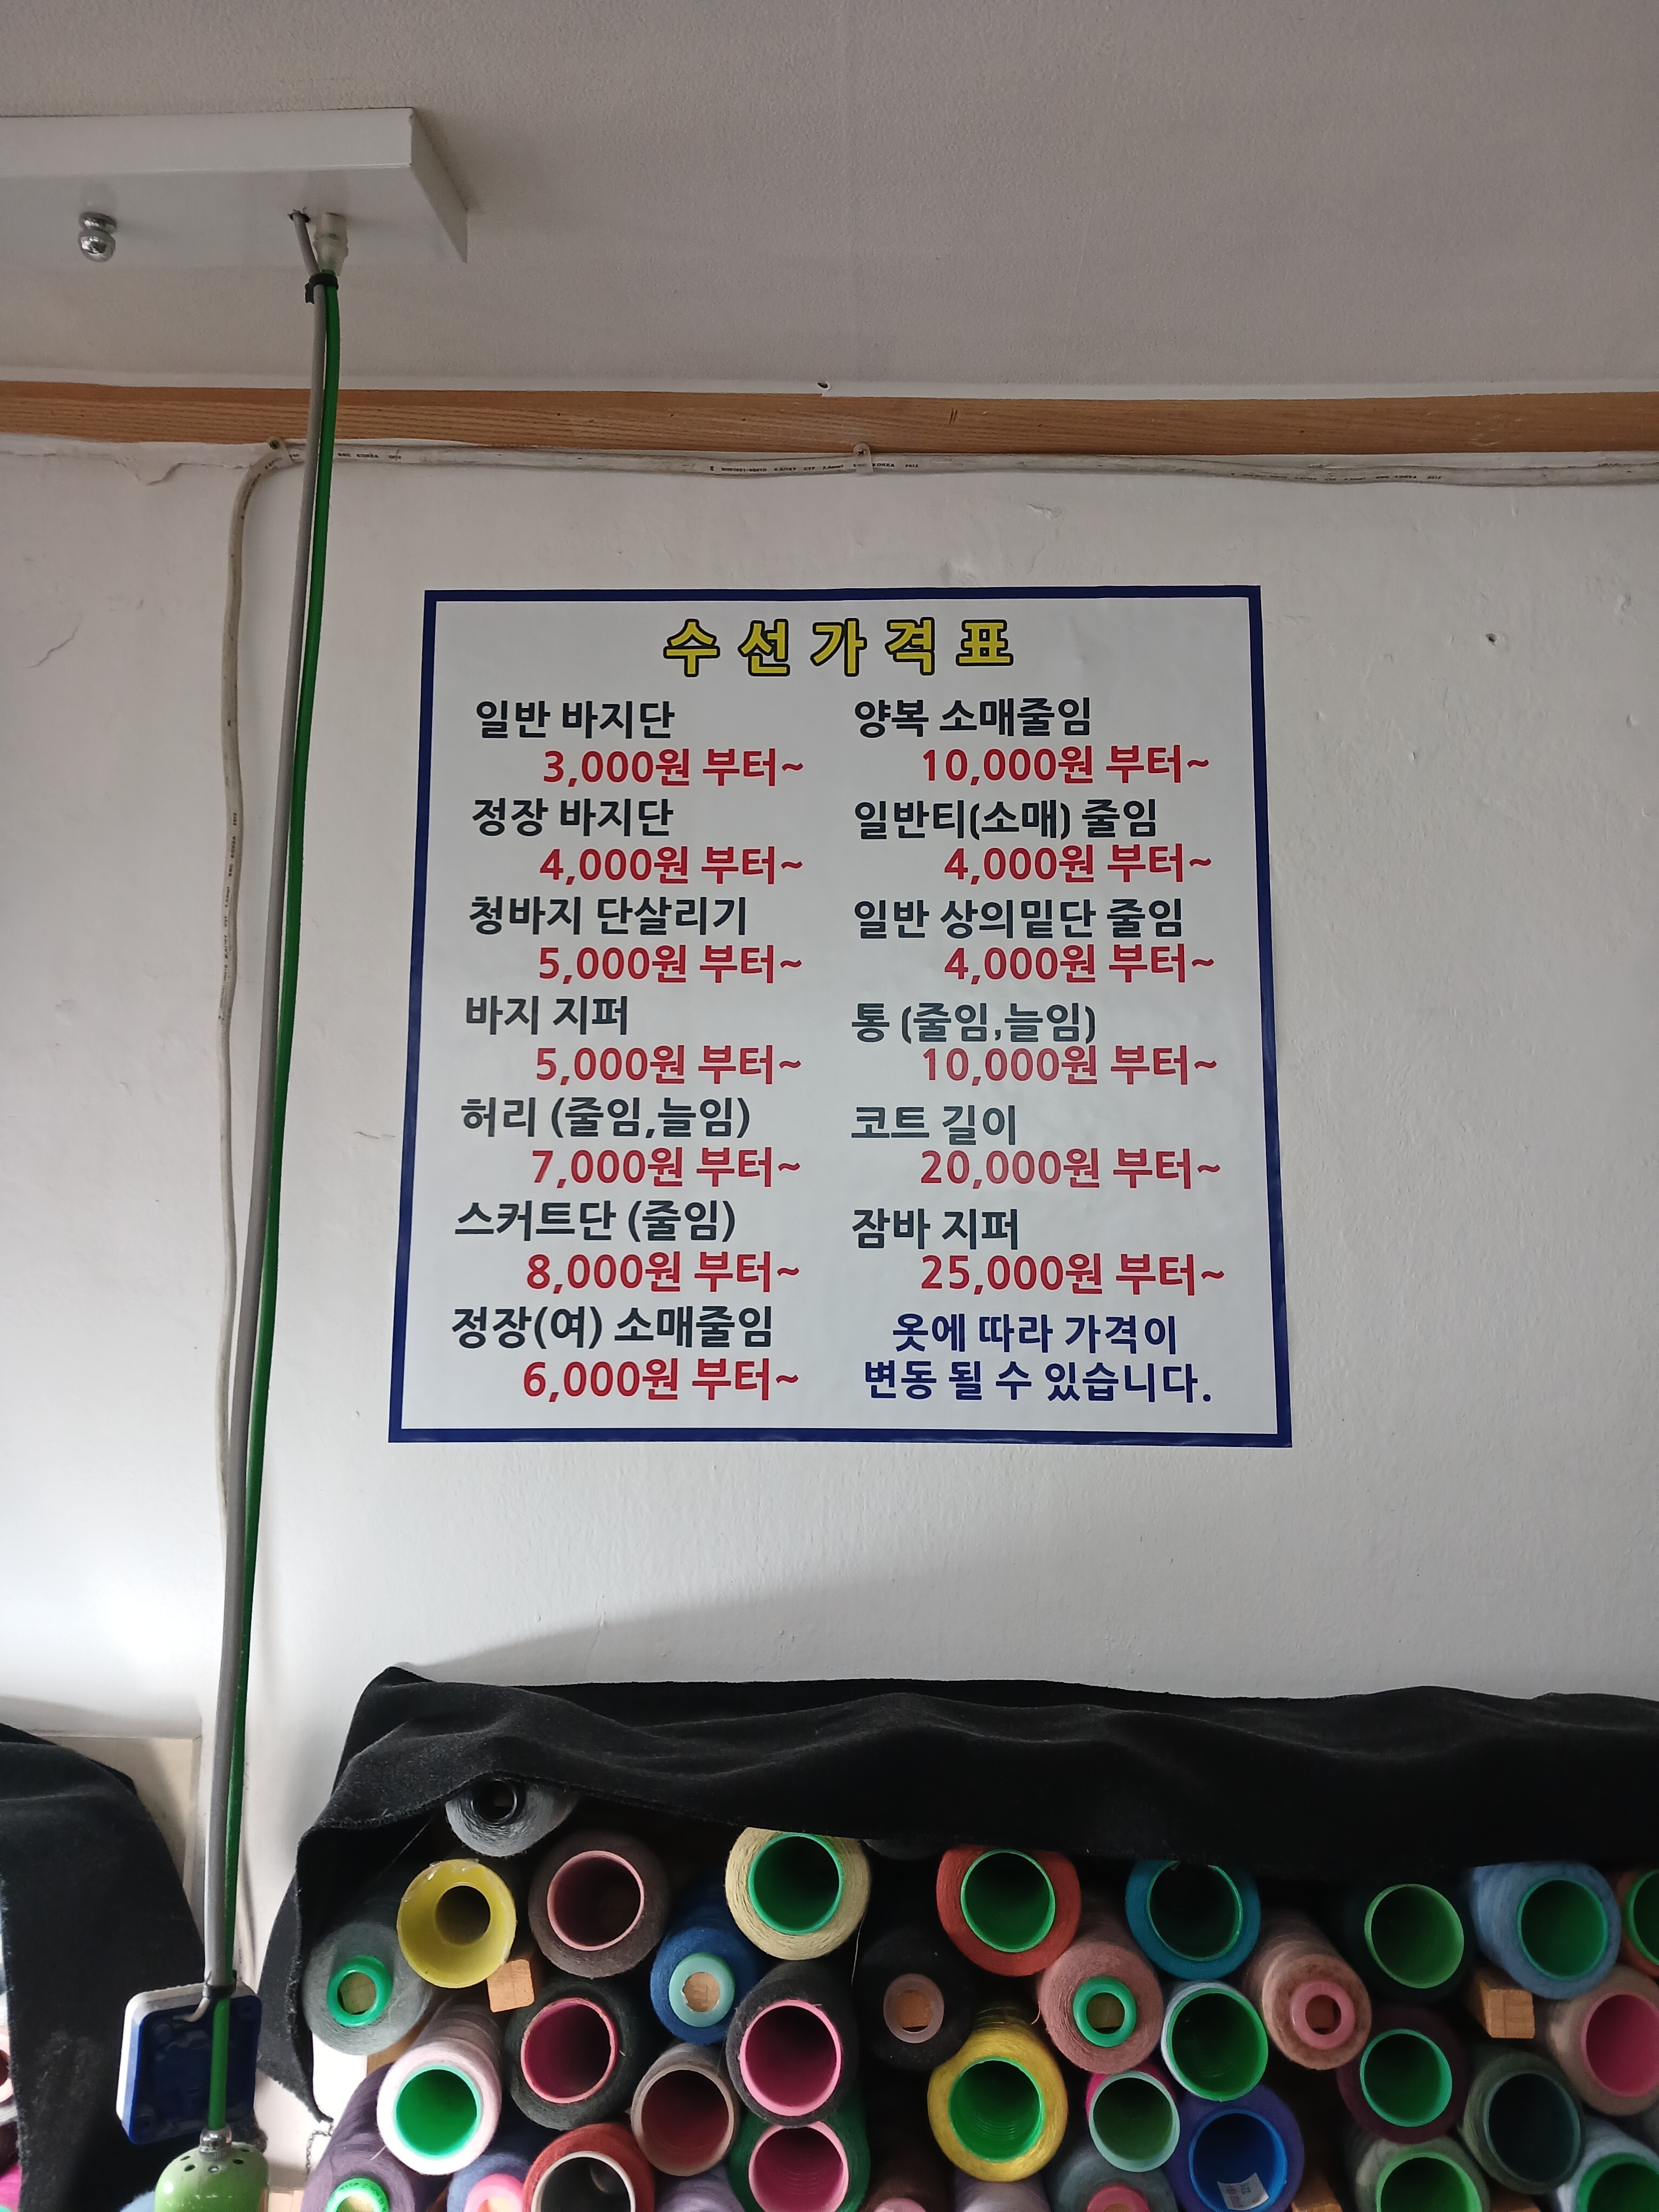 수선가격표
일반 바지단
3,000원 부터~
정장 바지단
4,000원 부터~
청바지 단살리기
5,000원 부터~
바지 지퍼
5,000원 부터~
허리 (줄임,늘임)
7,000원 부터~
스커트단 (줄임)
8,000원 부터~
정장(여) 소매줄임
6,000원 부터~
양복 소매줄임
10,000원 부터~
일반티(소매) 줄임
4,000원 부터~
일반 상의밑단 줄임
4,000원 부터~
통 (줄임,늘임)
10,000원 부터~
코트 길이
20,000원 부터~
잠바 지퍼
25,000원 부터~
옷에 따라 가격이
변동 될 수 있습니다.